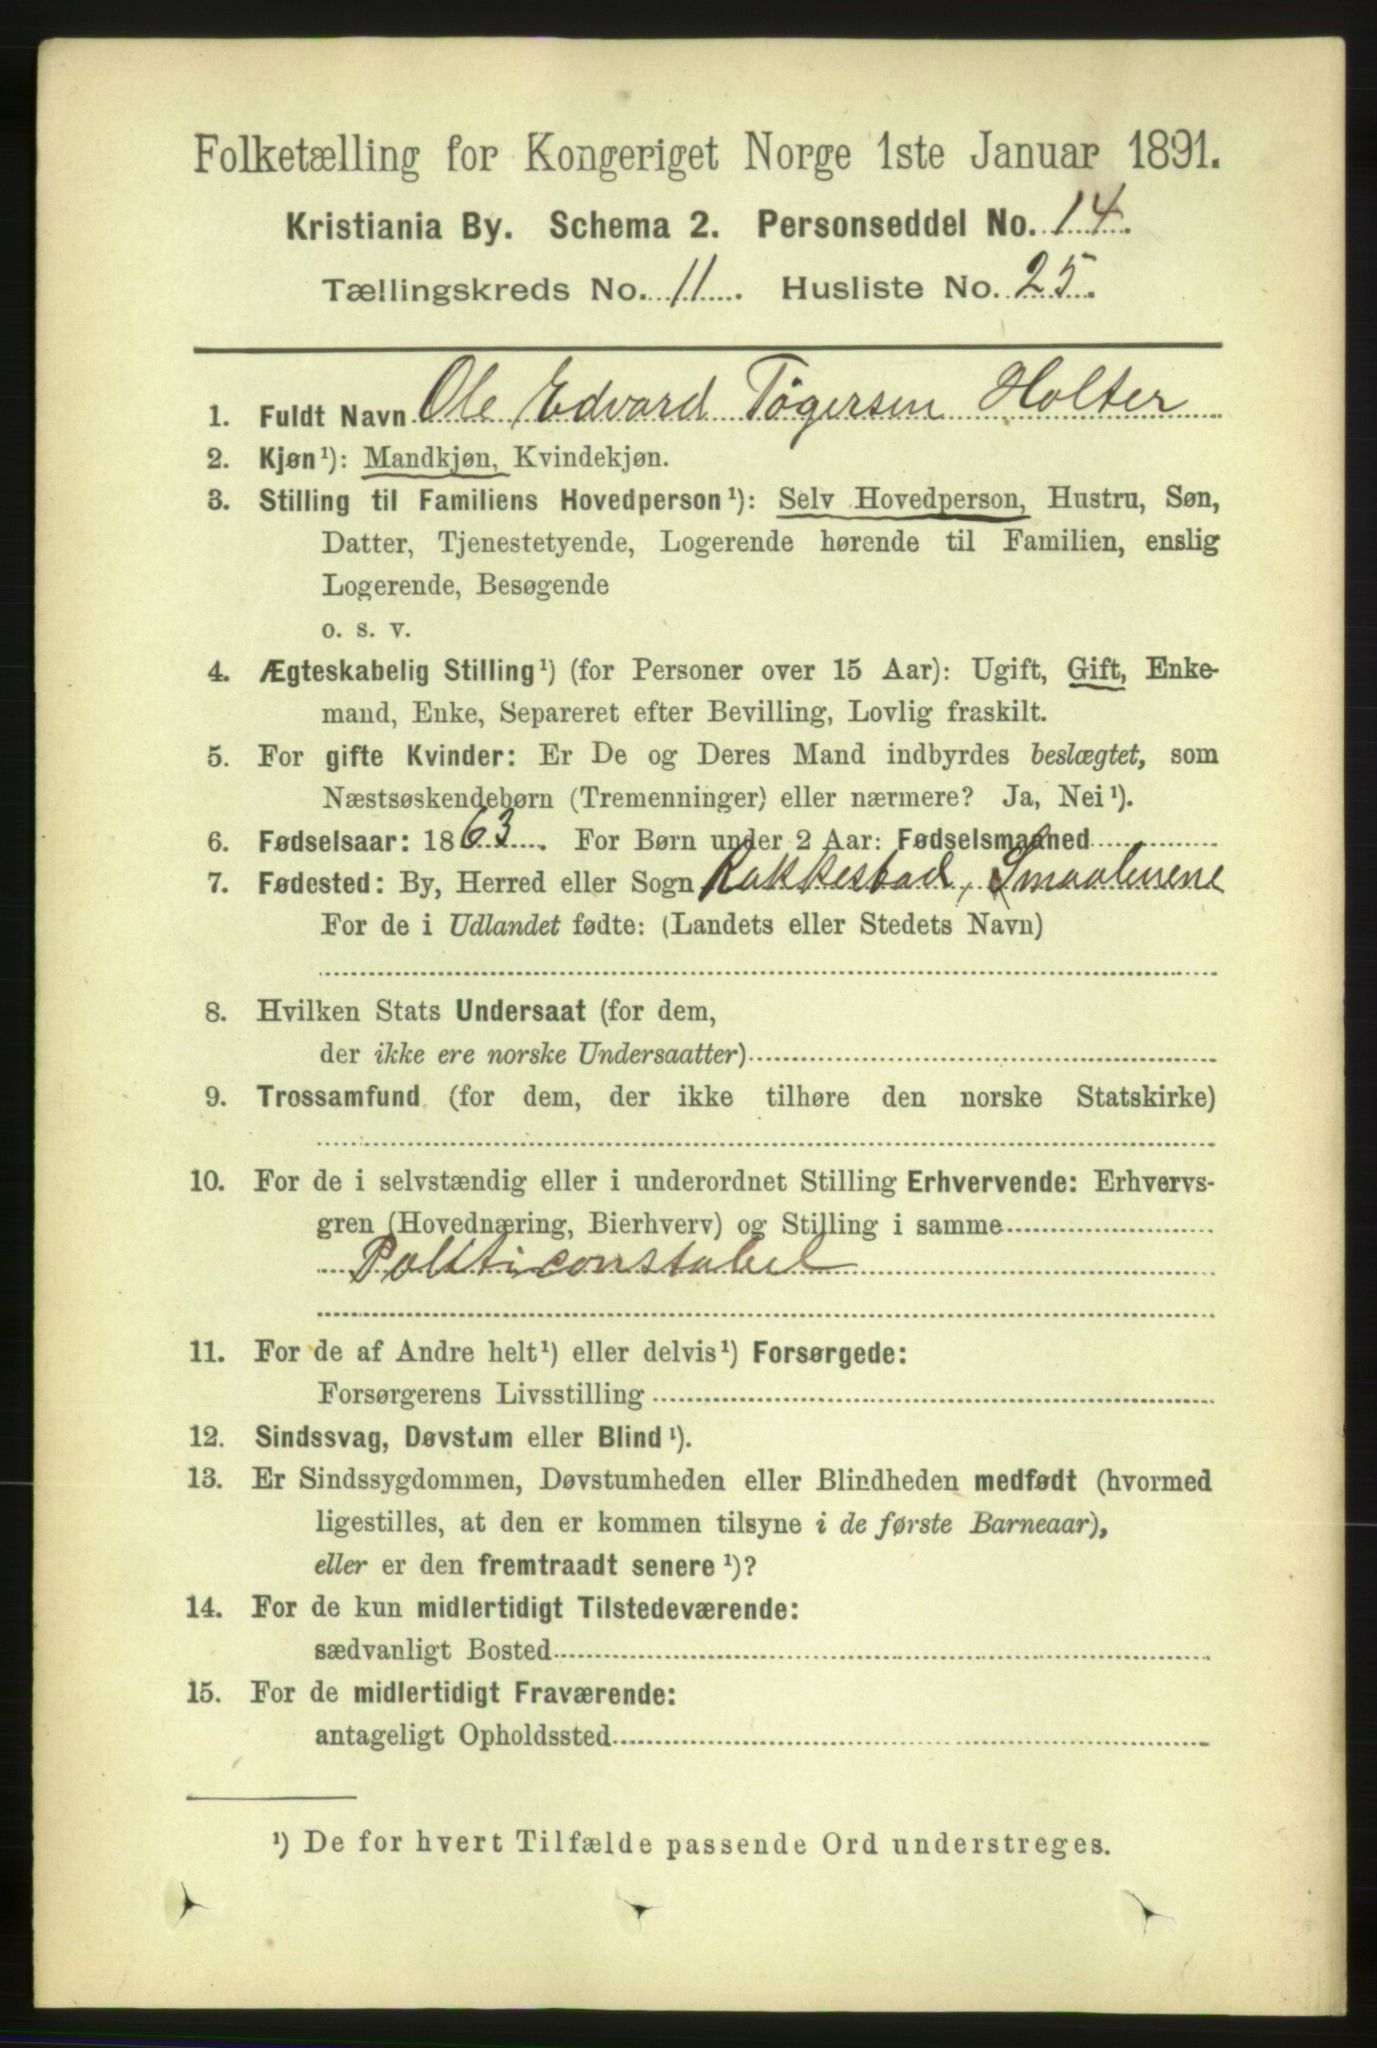 Folketælling for Kongeriget Norge 1ste Januar 1891.
Kristiania By. Schema 2. Personseddel No. 14.
Tællingskreds No. 11. Husliste No. 25.
1. Fuldt Navn Ole Edvard Tøgersen Holter
2. Kjøn¹): Mandkjøn, Kvindekjøn.
3. Stilling til Familiens Hovedperson¹): Selv Hovedperson, Hustru, Søn,
Datter, Tjenestetyende, Logerende hørende til Familien, enslig
Logerende, Besøgende
o. s. v.
4. Ægteskabelig Stilling¹) (for Personer over 15 Aar): Ugift, Gift, Enke-
mand, Enke, Separeret efter Bevilling, Lovlig fraskilt.
5. For gifte Kvinder: Er De og Deres Mand indbyrdes beslægtet, som
Næstsøskendebørn (Tremenninger) eller nærmere? Ja, Nei¹).
6. Fødselsaar: 1863. For Børn under 2 Aar: Fødselsmaaned
7. Fødested: By, Herred eller Sogn Rakkestad, Smaalenene
For de i Udlandet fødte: (Landets eller Stedets Navn)
8. Hvilken Stats Undersaat (for dem,
der ikke ere norske Undersaatter)
9. Trossamfund (for dem, der ikke tilhøre den norske Statskirke)
10. For de i selvstændig eller i underordnet Stilling Erhvervende: Erhvervs-
gren (Hovednæring, Bierhverv) og Stilling i samme
Politiconstabel
11. For de af Andre helt¹) eller delvis¹) Forsørgede:
Forsørgerens Livsstilling
12. Sindssvag, Døvstum eller Blind¹).
13. Er Sindssygdommen, Døvstumheden eller Blindheden medfødt (hvormed
ligestilles, at den er kommen tilsyne i de første Barneaar),
eller er den fremtraadt senere¹)?
14. For de kun midlertidigt Tilstedeværende:
sædvanligt Bosted
15. For de midlertidigt Fraværende:
antageligt Opholdssted
¹) De for hvert Tilfælde passende Ord understreges.